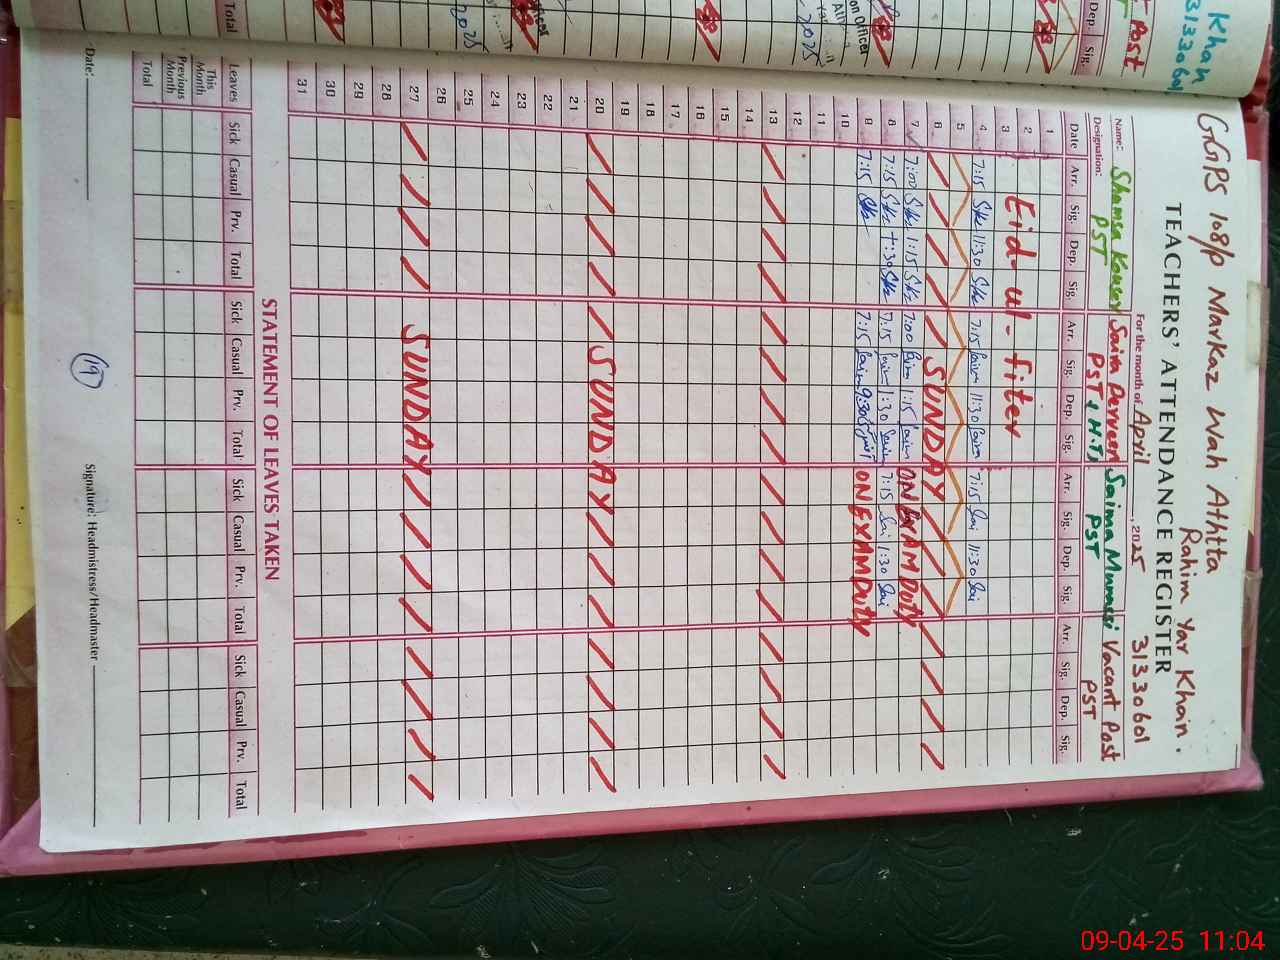 GGPS 108/P Markaz Wah Athtta
Rahim Yar Khan.
TEACHERS' ATTENDANCE REGISTER
31330601
For the month of April, 2025
Name: Shamsa Kousar Saira Perveen Saima Mumassi Vacant Post
Designation: PST PST, H.T, PST PST
Date Arr. Sig. Dep. Sig. Arr. Sig. Dep. Sig. Arr. Sig. Dep. Sig. Arr. Sig. Dep. Sig.
1
2
3
Eid-ul-fiter
4 7:15 11:30 7:15 11:30 7:15 Sai 11:30 Sai
5
6 SUNDAY
7 7:00 1:15 7:00 1:15 ON EXAM Duty
8 7:15 1:30 7:15 1:30 7:15 Sai 1:30 Sai
9 7:15 7:15 9:30 ON EXAM Duty
10
11
12
13
14
15
16
17
18
19
20 SUNDAY
21
22
23
24
25
26
27 SUNDAY
28
29
30
31
STATEMENT OF LEAVES TAKEN
Leaves Sick Casual Prv. Total Sick Casual Prv. Total Sick Casual Prv. Total Sick Casual Prv. Total
This Month
Previous Month
Total
Date: Signature: Headmistress/Headmaster
19
Khan
Post
Dep. Sig.
on Officer
2025
2025
Total
09-04-25 11:04